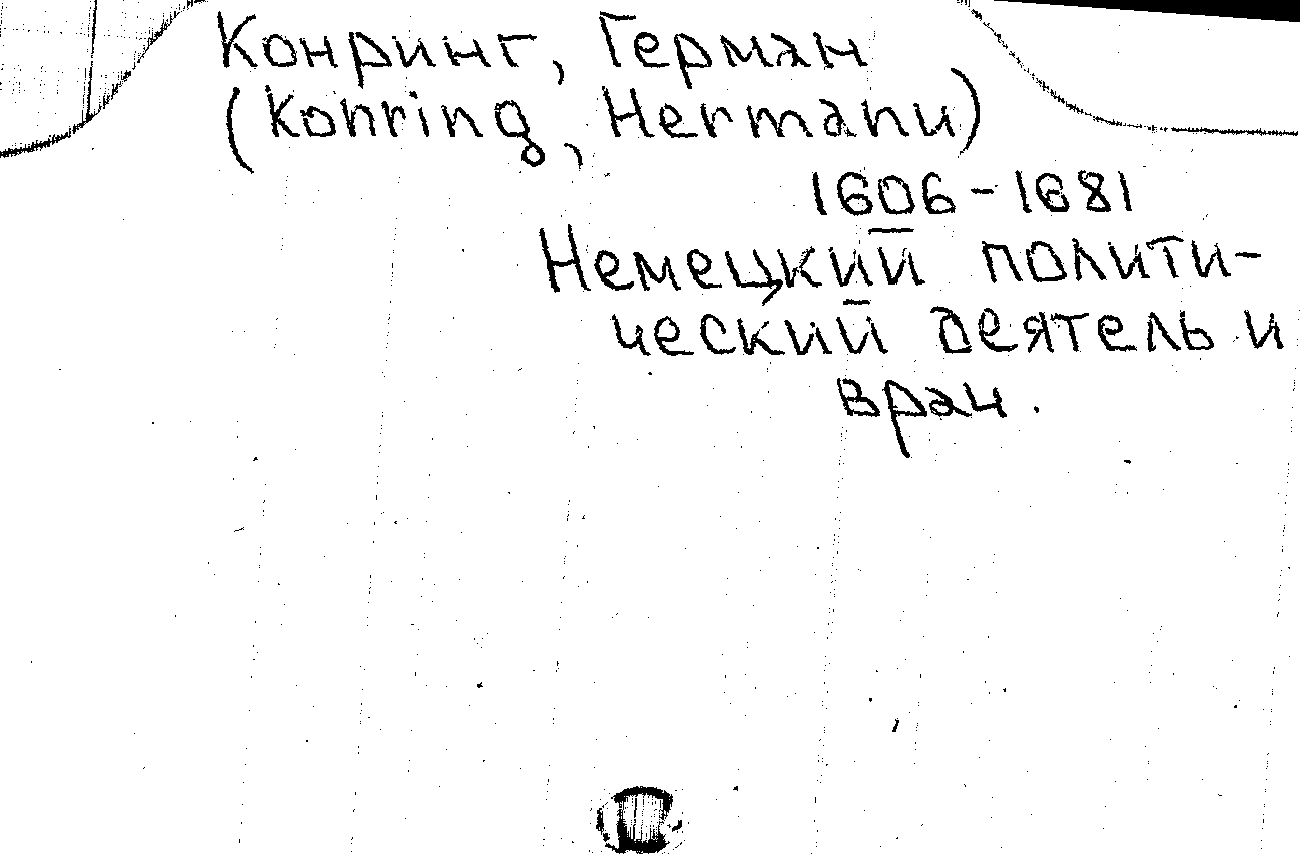 Конринг, Герман
(Konring, Hermanu)
1606-1681
Немецкий полити-
ческий деятель и
врач.